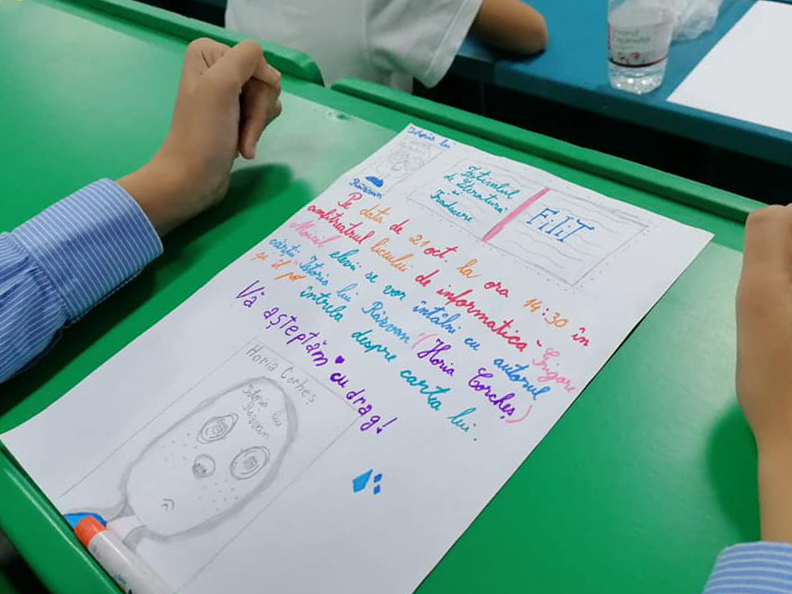 Istoria lui
Răzvan
Festivalul
de literatură
și
Traducere
F.I.T
Pe data de 21 oct la ora 14:30 în
amfiteatrul liceului de informatică "Grigore
Moisil elevii se vor întâlni cu autorul
cărții Istoria lui Răzvan (Horia Corcheș)
și îl pot întreba despre cartea lui.
Vă așteptăm cu drag!
Horia Corheș
Istoria lui
Răzvan